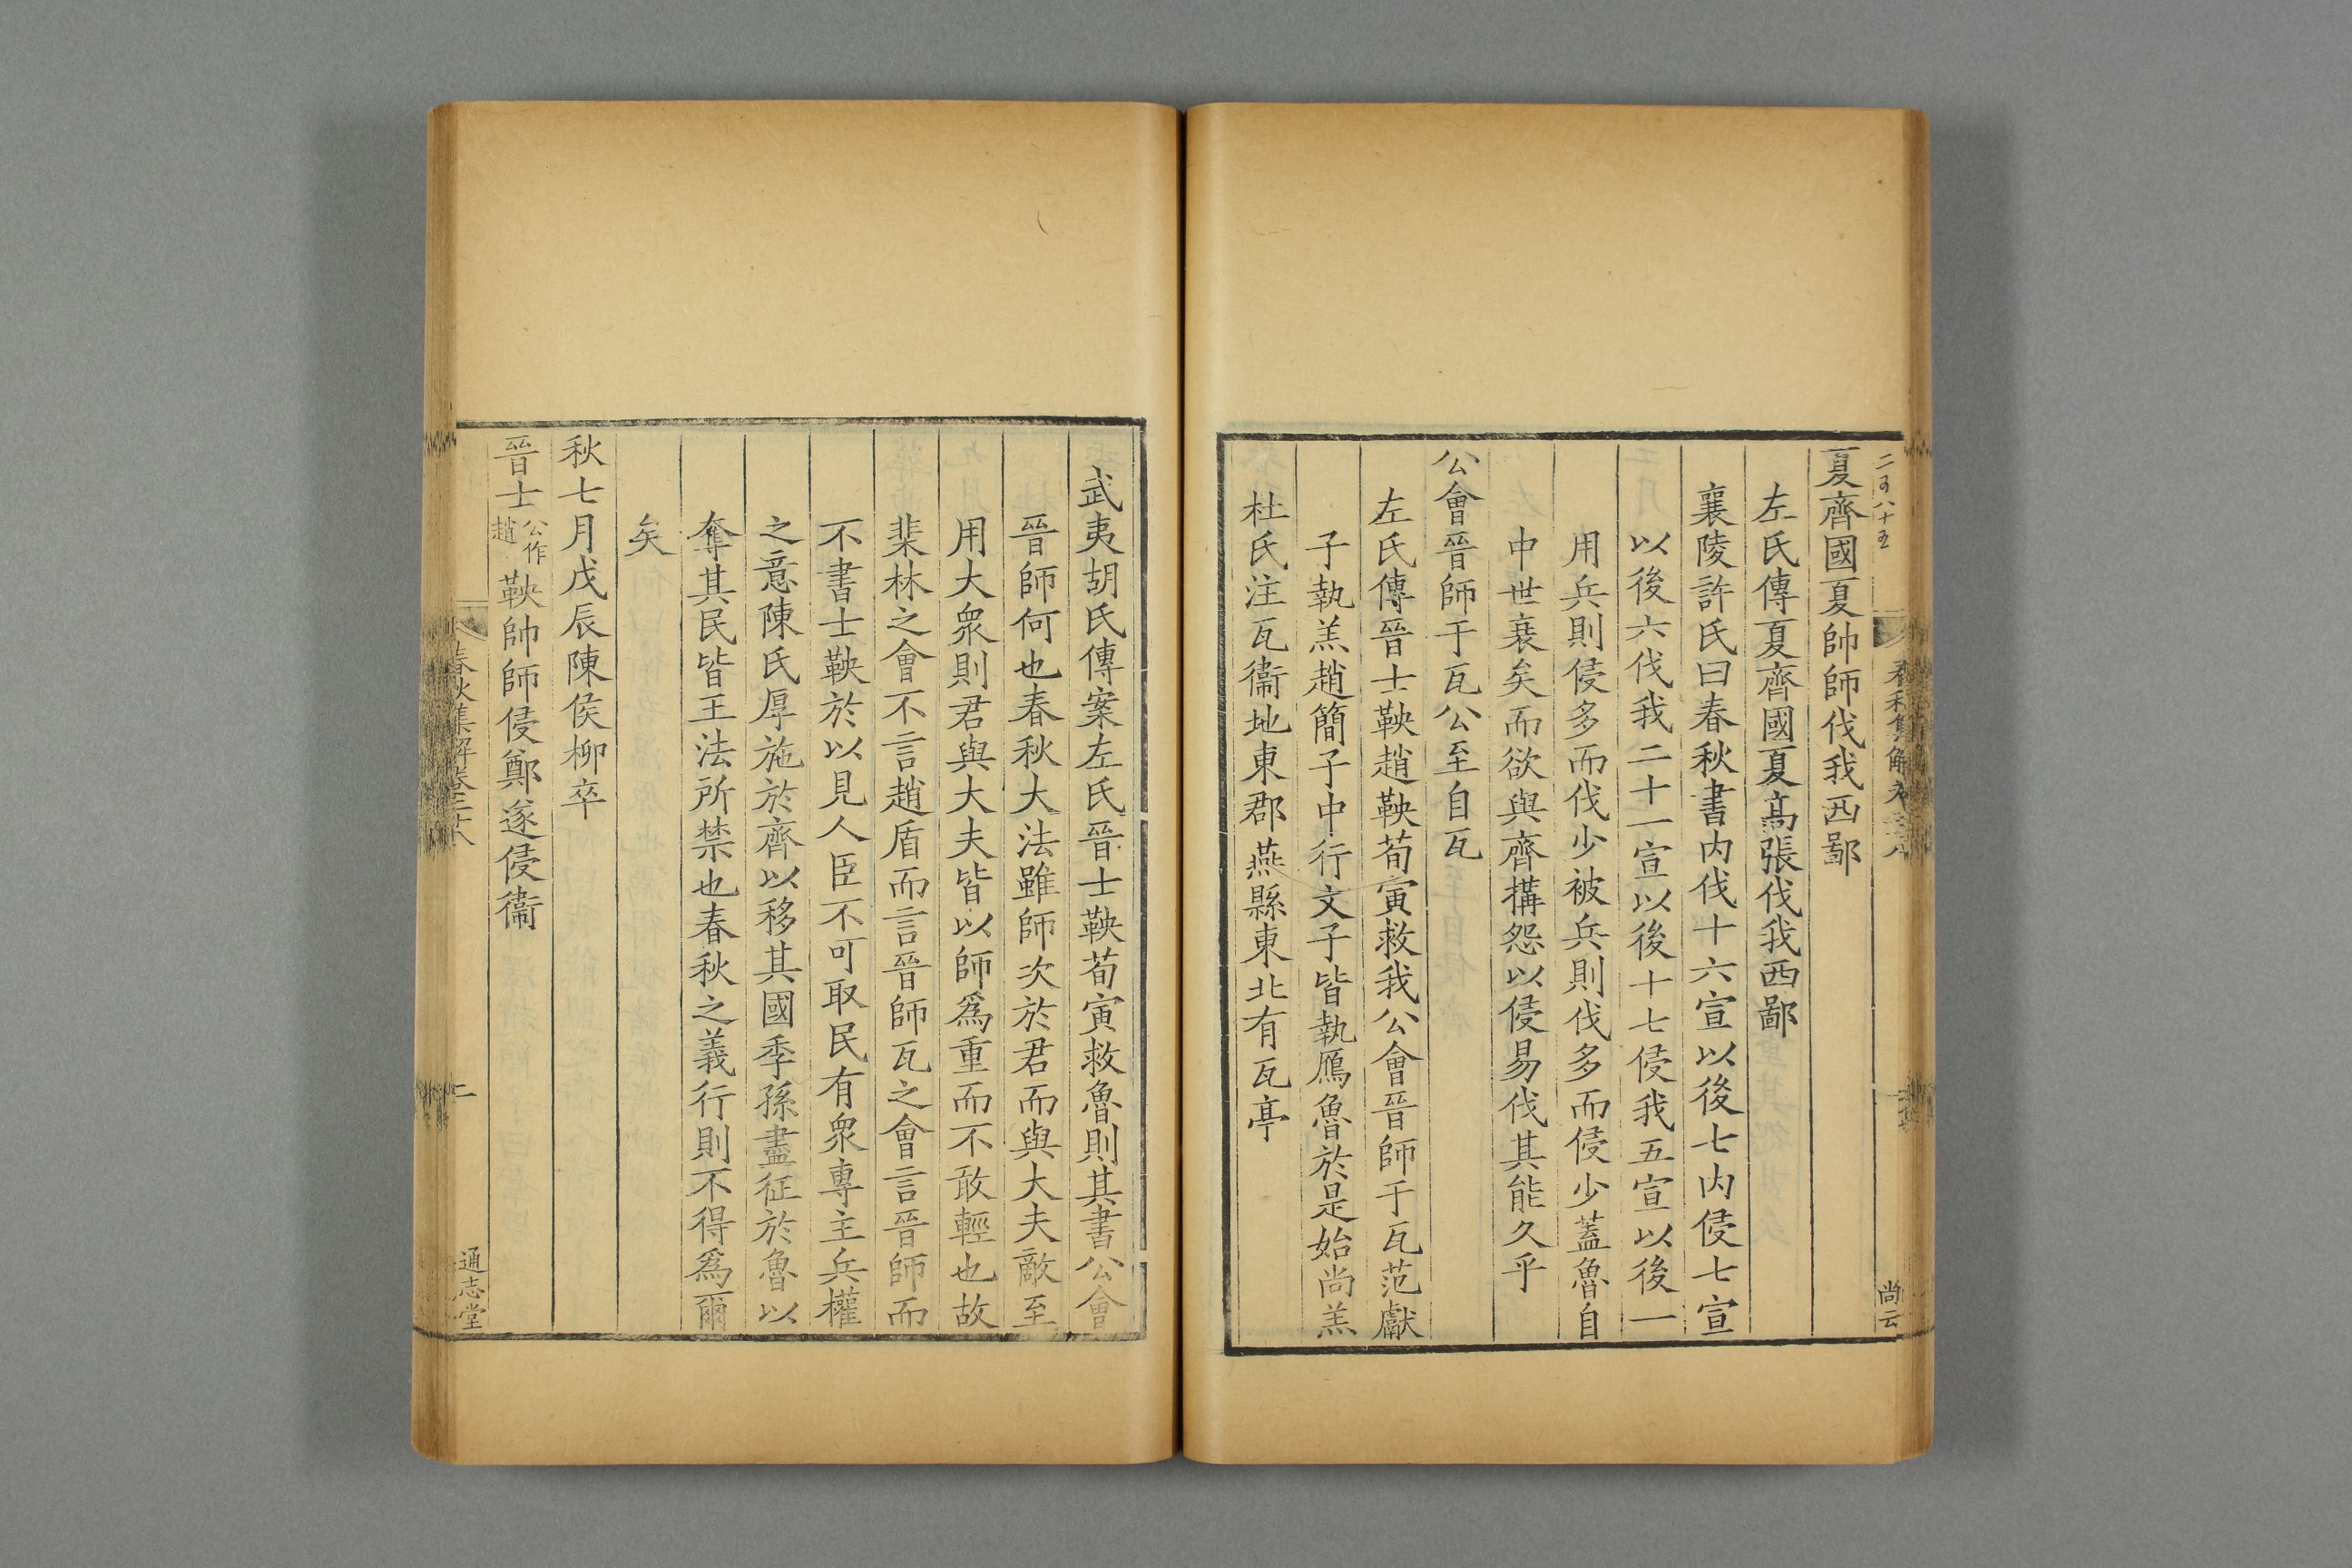 二百八十五
春秋集解卷二十八
尚云
夏齊國夏帥師伐我西鄙
左氏傳夏齊國夏高張伐我西鄙
襄陵許氏曰春秋書内伐十六宣以後七内侵七宣
以後六伐我二十一宣以後十七侵我五宣以後一
用兵則侵多而伐少被兵則伐多而侵少蓋魯自
中世衰矣而欲與齊構怨以侵易伐其能久乎
公會晉師于瓦公至自瓦
左氏傳晉士鞅趙鞅荀寅救我公會晉師于瓦范獻
子執羔趙簡子中行文子皆執鴈魯於是始尚羔
杜氏注瓦衞地東郡燕縣東北有瓦亭
武夷胡氏傳案左氏晉士鞅荀寅救魯則其書公會
晉師何也春秋大法雖師次於君而與大夫敵至
用大衆則君與大夫皆以師爲重而不敢輕也故
棐林之會不言趙盾而言晉師瓦之會言晉師而
不書士鞅於以見人臣不可取民有衆專主兵權
之意陳氏厚施於齊以移其國季孫盡征於魯以
奪其民皆王法所禁也春秋之義行則不得爲爾
矣
秋七月戊辰陳侯柳卒
晉士公作趙鞅帥師侵鄭遂侵衞
春秋集解卷二十八
二
通志堂